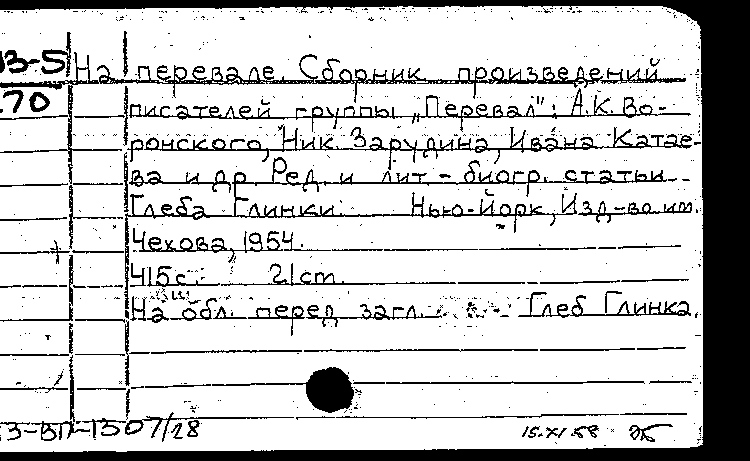 На перевале. Сборник произведений
писателей группы „Перевал": А.К. Во-
ронского, Ник. Зарудина, Ивана Катае-
ва и др. Ред. и лит.-биогр. статьи
Глеба Глинки. Нью-Йорк, Изд-во им.
Чехова, 1954.
415 с. 21 cm.
На обл. перед загл.: Глеб Глинка.
15.XI.58